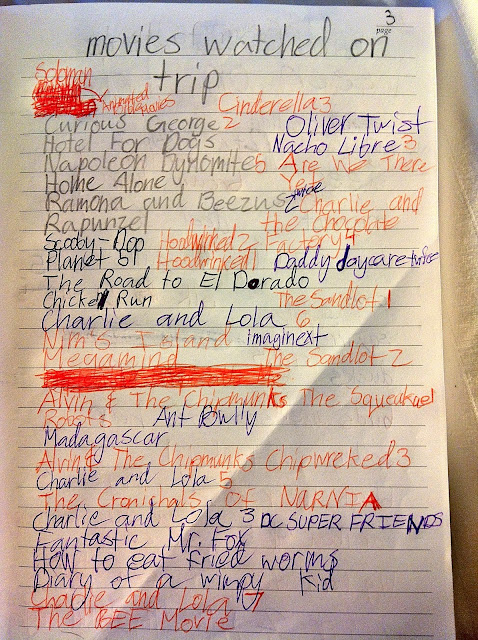 3
page
movies watched on
trip
Soloman
Animated
Cinderella 3
Curious George 2 Oliver Twist
Hotel For Dogs Nacho Libre 3
Napoleon Dynomite 5 Are We There
Yet
Home Alone
Ramona and Beezus twice Charlie and
Rapunzel the Chocolate
Scooby-Doo Hoodwinked 2 Factory 4
Planet 51 Hoodwinked 1 Daddy daycare
The Road to El Dorado
Chicken Run The Sandlot 1
Charlie and Lola 6
Nim's Island imaginext
Megamind The Sandlot 2
Alvin & The Chipmunks The Squeakuel
Robots Ant Bully
Madagascar
Alvin & The Chipmunks Chipwreked 3
Charlie and Lola 5
The Cronichals of NARNIA
Charlie and Lola 3 DC SUPER FRIENDS
Fantastic Mr. Fox
How to eat fried worms
Diary of a wimpy kid
Charlie and Lola 7
The BEE Movie